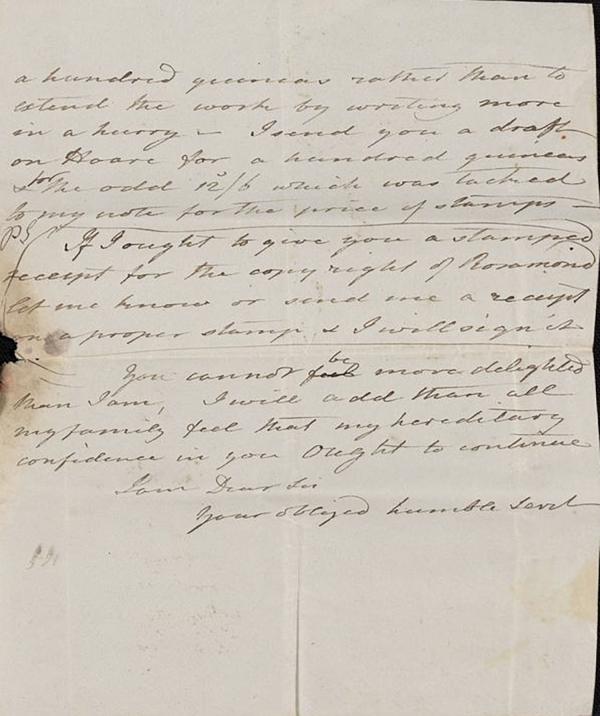 a hundred guineas rather than to
extend the work by writing more
in a hurry – I send you a draft
on Hoare for a hundred guineas
& for the odd 12/6 which was tacked
to my note for the price of stamps –
PS If I ought to give you a stamped
receipt for the copy right of Rosamond
let me know or send me a receipt
on a proper stamp & I will sign it
You cannot feel be more delighted
than I am, I will add than all
my family feel that my hereditary
confidence in you ought to continue
I am Dear Sir
Your obliged humble Servt